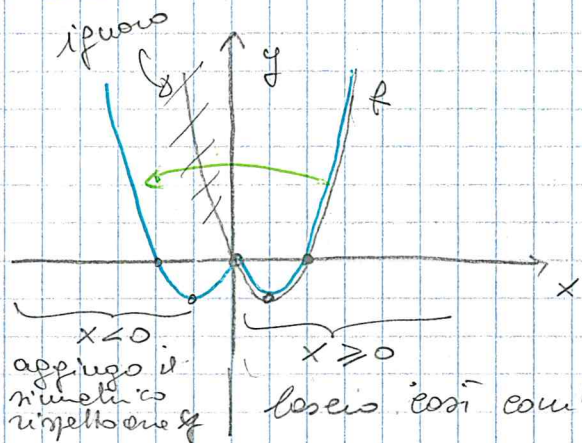 ignoro
y
f
x
x<0
x ≥ 0
aggiungo il
simmetrico
rispetto asse y
lascio così com